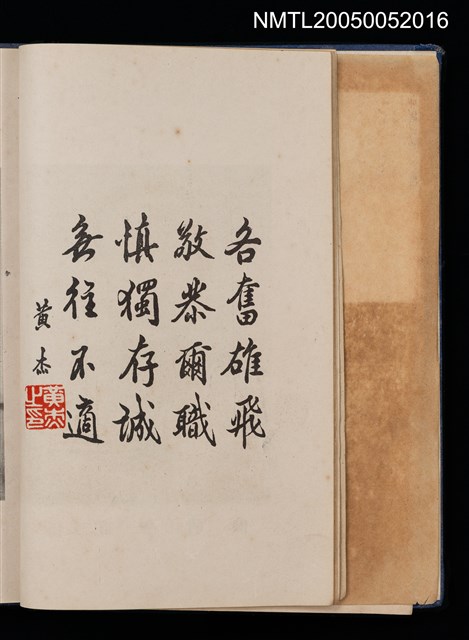 NMTL20050052016
各奮雄飛
敬恭爾職
慎獨存誠
無往不適
黃杰
黃杰之印